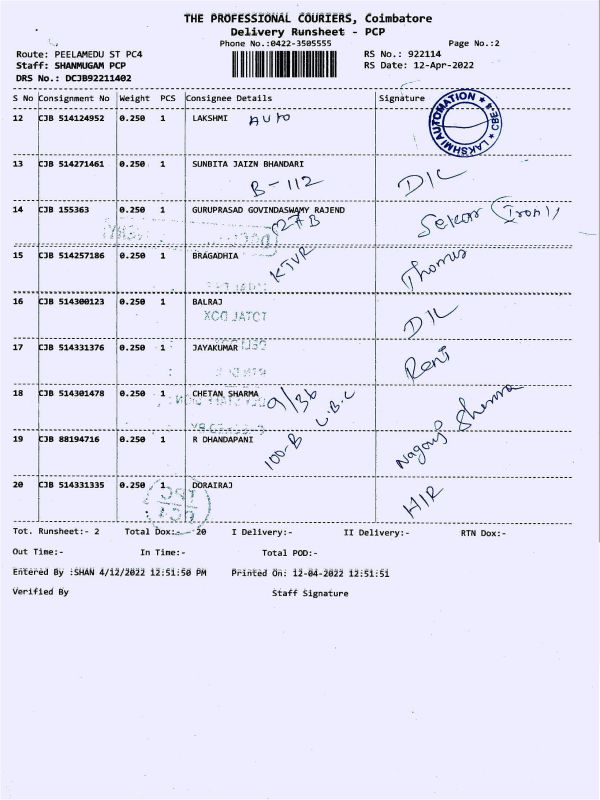 THE PROFESSIONAL COURIERS, Coimbatore
Delivery Runsheet - PCP
Phone No.:0422-3505555 Page No.:2
Route: PEELAMEDU ST PC4 RS No.: 922114
Staff: SHANMUGAM PCP RS Date: 12-Apr-2022
DRS No.: DCJB92211402
S No Consignment No Weight PCS Consignee Details Signature
12 CJB 514124952 0.250 1 LAKSHMI AUTO LAKSHMI AUTOMATION CBE-4
13 CJB 514271461 0.250 1 SUNBITA JAIZN BHANDARI
B-112 DIL
14 CJB 155363 0.250 1 GURUPRASAD GOVINDASWAMY RAJEND
27B Sekar
15 CJB 514257186 0.250 1 BRAGADHIA Thomas
KTVR
16 CJB 514300123 0.250 1 BALRAJ DIL
TOTAL DOX
17 CJB 514331376 0.250 1 JAYAKUMAR Rani
18 CJB 514301478 0.250 1 CHETAN SHARMA 9/36 Nagaraj Sharma
19 CJB 88194716 0.250 1 R DHANDAPANI
100-B
20 CJB 514331335 0.250 1 DORAIRAJ HIR
Tot. Runsheet:- 2 Total Dox:- 20 I Delivery:- II Delivery:- RTN Dox:-
Out Time:- In Time:- Total POD:-
Entered By :SHAN 4/12/2022 12:51:50 PM Printed On: 12-04-2022 12:51:51
Verified By Staff Signature